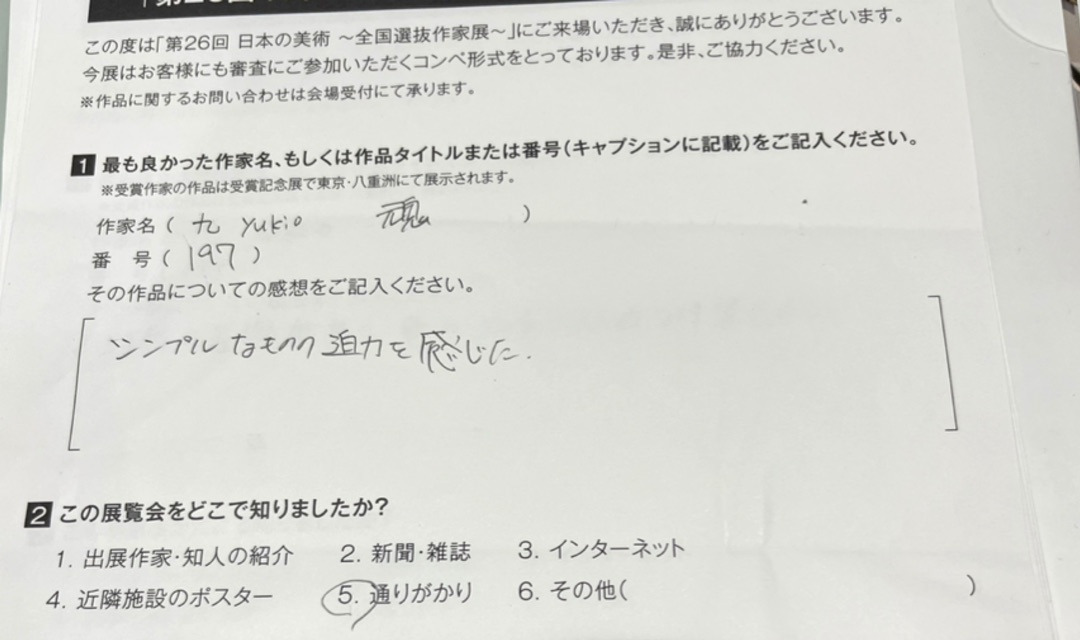 この度は「第26回 日本の美術 〜全国選抜作家展〜」にご来場いただき、誠にありがとうございます。
今展はお客様にも審査にご参加いただくコンペ形式をとっております。是非、ご協力ください。
※作品に関するお問い合わせは会場受付にて承ります。
1 最も良かった作家名、もしくは作品タイトルまたは番号(キャプションに記載)をご記入ください。
※受賞作家の作品は受賞記念展で東京・八重洲にて展示されます。
作家名( 九 yukio )
番 号( 197 )
その作品についての感想をご記入ください。
シンプルなものの迫力を感じた.
2 この展覧会をどこで知りましたか?
1. 出展作家・知人の紹介 2. 新聞・雑誌 3. インターネット
4. 近隣施設のポスター 5. 通りがかり 6. その他( )